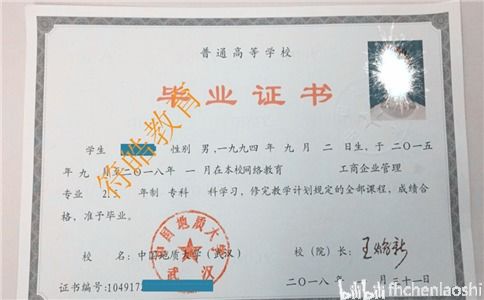 普通高等学校
毕业证书
学生 性别 男,一九九四年 九 月 二 日生,于二〇一五
年 九 月至二〇一八年 一 月在本校网络教育 工商企业管理
专业 2. 年制 专科 科学习,修完教学计划规定的全部课程,成绩合
格,准予毕业。
校 名:中国地质大学(武汉) 校(院)长:
证书编号:10491 二〇一八年 月三十一日
中国地质大学
武汉
符皓教育
bilibili fhchenlaoshi